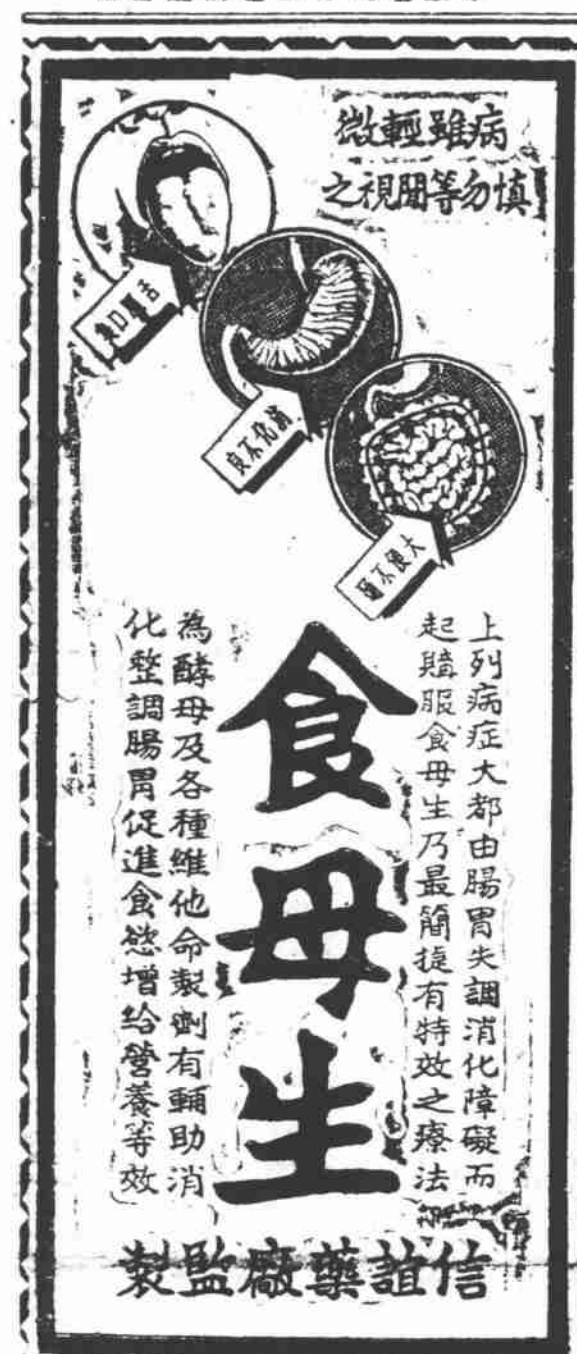 病雖輕微
慎勿等閒視之
口臭
消化不良
大便不通
上列病症大都由腸胃失調消化障礙而
起購服食母生乃最簡捷有特效之療法
食母生
為酵母及各種維他命製劑有輔助消
化整調腸胃促進食慾增給營養等效
信誼藥廠監製